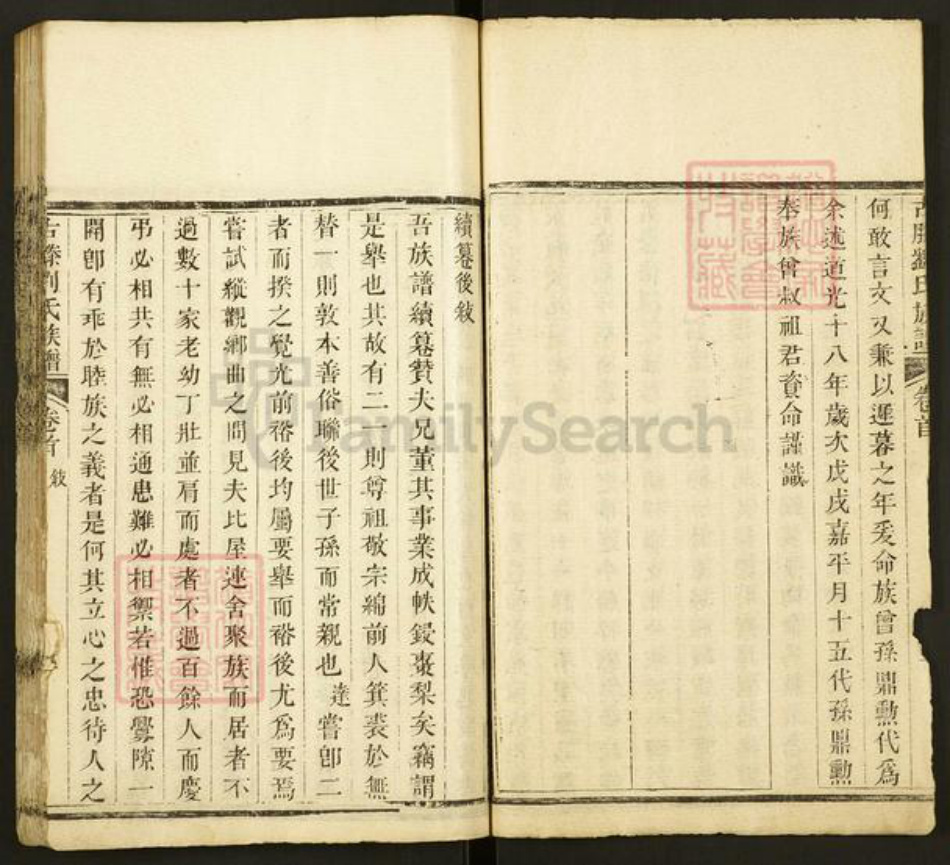 劉氏族譜
卷首
何敢言文又兼以遲暮之年爰命族曾孫鼎勲代爲
余述道光十八年歲次戊戌嘉平月十五代孫鼎勲
奉族曾叔祖君資命謹識
續纂後敘
吾族譜續纂贊夫兄董其事業成帙鋟棗梨矣竊謂
是舉也其故有二一則尊祖敬宗綿前人箕裘於無
替一則敦本善俗聯後世子孫而常親也達嘗卽二
者而揆之覺光前裕後均屬要舉而裕後尤爲要焉
嘗試縱觀鄉曲之間見夫比屋連舍聚族而居者不
過數十家老幼丁壯並肩而處者不過百餘人而慶
弔必相共有無必相通患難必相禦若惟恐釁隙一
開卽有乖於睦族之義者是何其立心之忠待人之
劉氏族譜
卷首 敘
FamilySearch